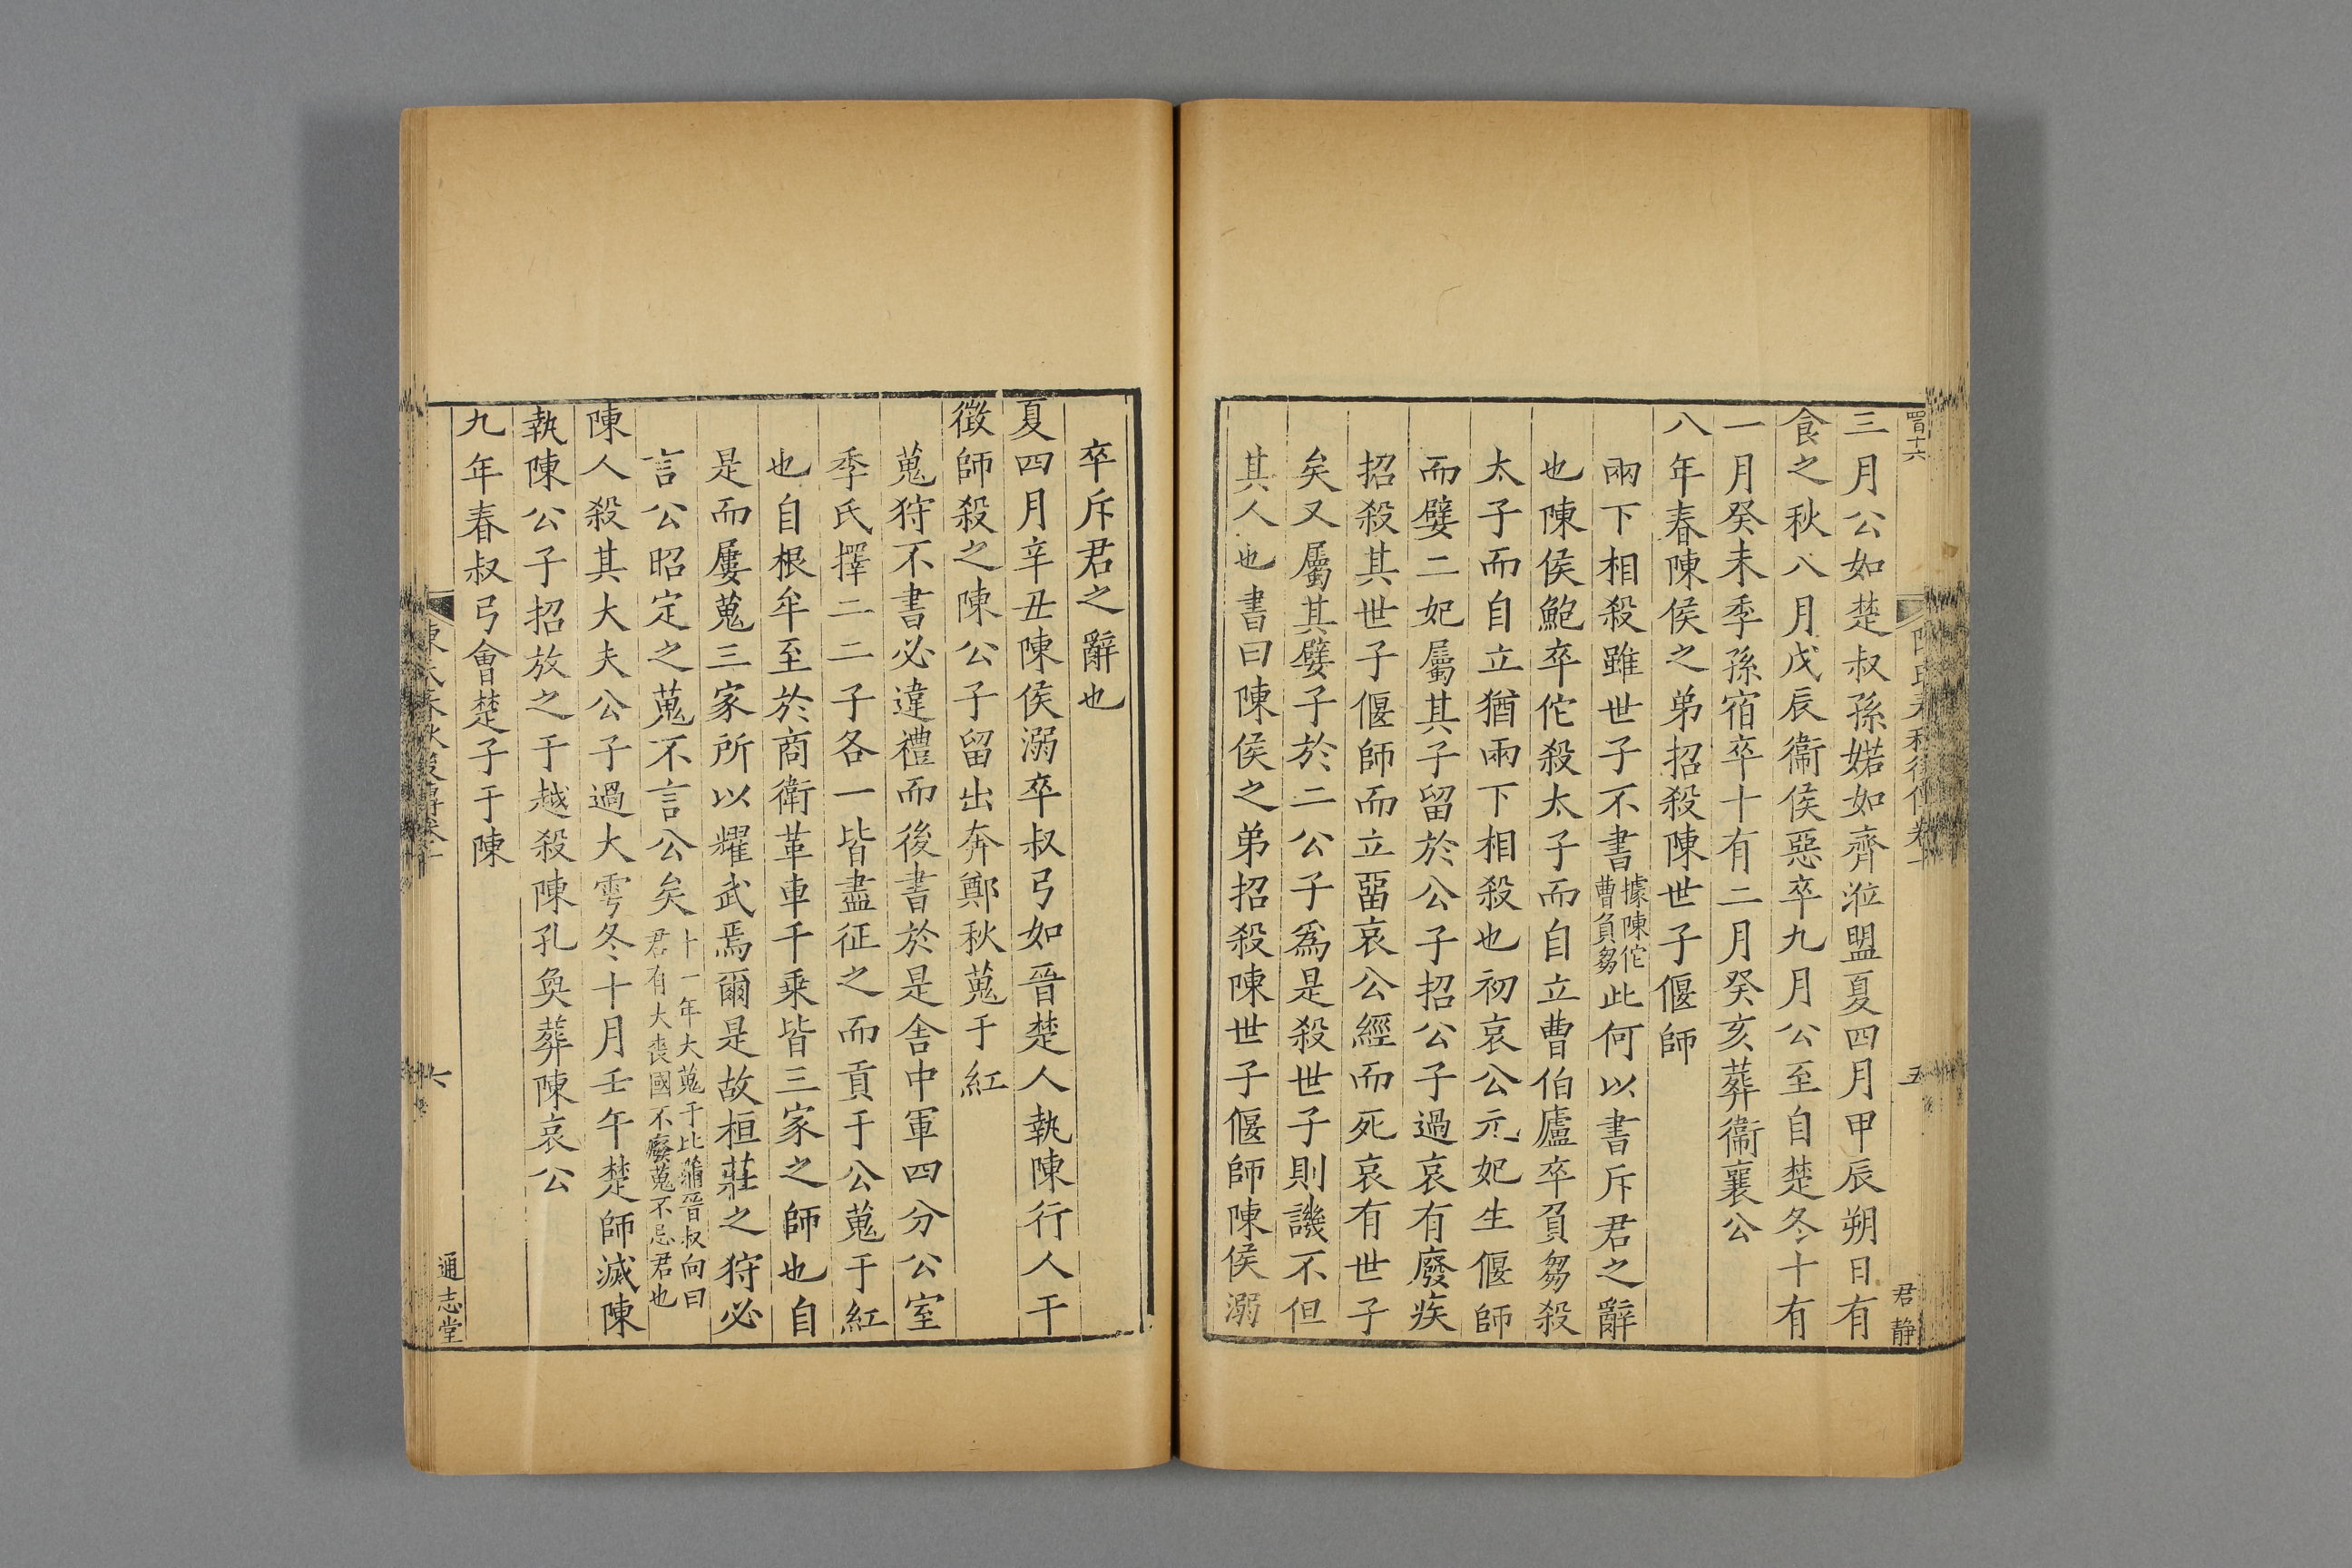 三月公如楚叔孫婼如齊涖盟夏四月甲辰朔日有
食之秋八月戊辰衞侯惡卒九月公至自楚冬十有
一月癸未季孫宿卒十有二月癸亥葬衞襄公
八年春陳侯之弟招殺陳世子偃師
兩下相殺雖世子不書據陳佗曹負芻此何以書斥君之辭
也陳侯鮑卒佗殺太子而自立曹伯廬卒負芻殺
太子而自立猶兩下相殺也初哀公元妃生偃師
而嬖二妃屬其子留於公子招公子過哀有廢疾
招殺其世子偃師而立畱哀公經而死哀有世子
矣又屬其嬖子於二公子爲是殺世子則譏不但
其人也書曰陳侯之弟招殺陳世子偃師陳侯溺
君静
五
卒斥君之辭也
夏四月辛丑陳侯溺卒叔弓如晉楚人執陳行人干
徵師殺之陳公子留出奔鄭秋蒐于紅
蒐狩不書必違禮而後書於是舍中軍四分公室
季氏擇二二子各一皆盡征之而貢于公蒐于紅
也自根牟至於商衛革車千乗皆三家之師也自
是而屢蒐三家所以耀武焉爾是故桓莊之狩必
言公昭定之蒐不言公矣十一年大蒐于比蒲晉叔向曰君有大喪國不廢蒐不忌君也
陳人殺其大夫公子過大雩冬十月壬午楚師滅陳
執陳公子招放之于越殺陳孔奐葬陳哀公
九年春叔弓會楚子于陳
六
通志堂